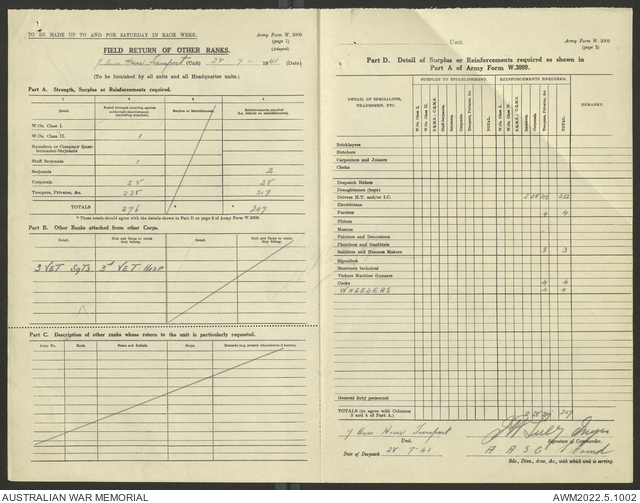 TO BE MADE UP TO AND FOR SATURDAY IN EACH WEEK.
Army Form W. 3009
(page 1)
(Adapted)
FIELD RETURN OF OTHER RANKS.
(Unit) 28 - 7 - 1941 (Date)
(To be furnished by all units and all Headquarter units.)
Part A. Strength, Surplus or Reinforcements required.
1 2 3 4
Detail Surplus to Establishment Reinforcements required
W.Os. Class I.
W.Os. Class II. 1
Squadron or Company Quarter-
master-Serjeants
Staff Serjeants 1
Serjeants 2
Corporals 28
Troopers, Privates, &c. 217
TOTALS 276 * * 247
* These totals should agree with the details shown in Part D on page 2 of Army Form W.3009.
Part B. Other Ranks attached from other Corps.
Detail. Unit and Corps to which they belong. Detail. Unit and Corps to which they belong.
3 VET Sgts 3rd VET Hosp
Part C. Description of other ranks whose return to the unit is particularly requested.
Army No. Rank. Name and Initials. Corps. Remarks (e.g. present whereabouts if known).
Unit.
Army Form W. 3009
(page 2)
Part D. Detail of Surplus or Reinforcements required as shown in
Part A of Army Form W.3009.
SURPLUS TO ESTABLISHMENT. REINFORCEMENTS REQUIRED.
DETAIL OF SPECIALISTS, TRADESMEN, ETC.
W.Os. Class I. W.Os. Class II. S.Q.M.S.; C.Q.M.S. Staff-Serjeants. Serjeants. Corporals. Troopers, Privates, &c. TOTAL.
W.Os. Class I. W.Os. Class II. S.Q.M.S.; C.Q.M.S. Serjeants. Corporals. Troopers, Privates, &c. TOTAL.
REMARKS
Bricklayers
Butchers
Carpenters and Joiners
Clerks
Despatch Riders
Draughtsmen (topo)
Drivers H.T. and/or I.C. 2 28 232
Electricians
Farriers 4 4
Fitters
Masons
Painters and Decorators
Plumbers and Gasfitters
Saddlers and Harness Makers 3 3
Signallers
Storemen technical
Vickers Machine Gunners
Cooks 4 4
WHEELERS 4 4
General duty personnel
TOTALS (to agree with Columns
3 and 4 of Part A.) 2 28 217 247
7 Horse Transport
Unit.
Signature of Commander.
Date of Despatch 28 - 7 - 41
A A S C
Bde., Divn., Area, &c., with which unit is serving.
AUSTRALIAN WAR MEMORIAL
AWM2022.5.1002